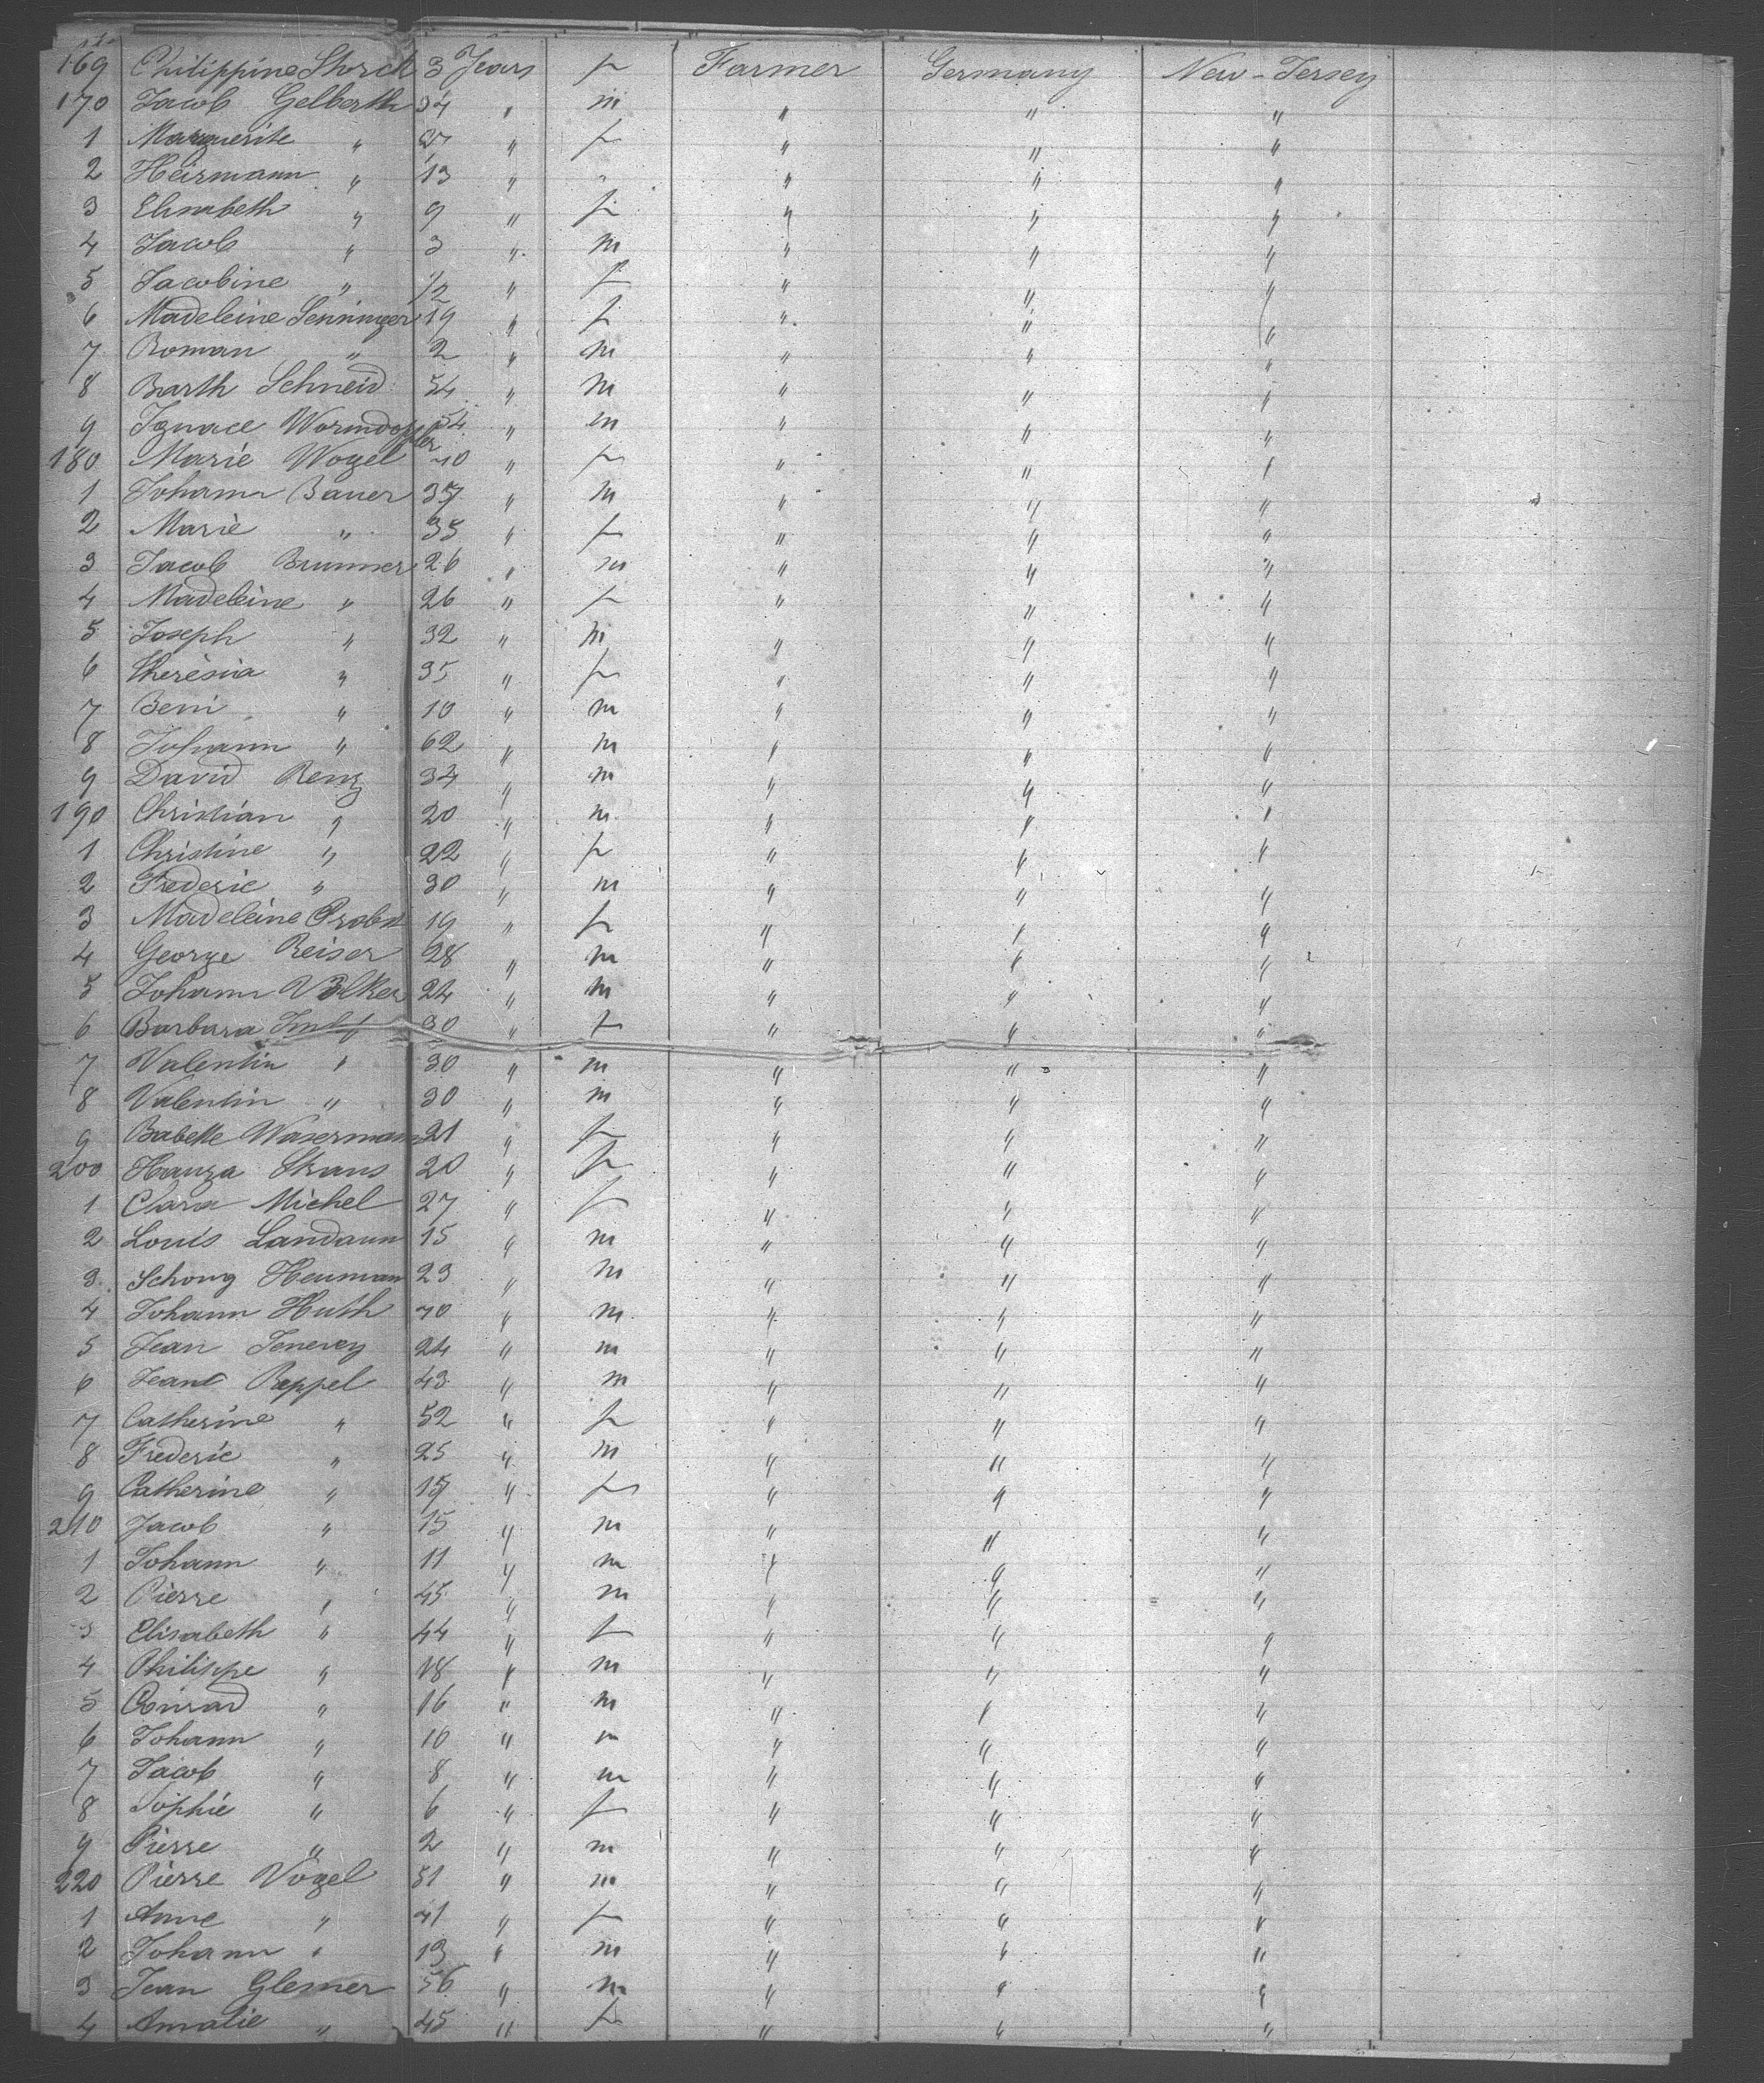 169 Philippine Storck 3 Years f Farmer Germany New-Jersey
170 Jacob Gelberth 34 " m " " "
1 Marguerite " 37 " f " " "
2 Heirmann " 13 " " " " "
3 Elisabeth " 9 " f " " "
4 Jacob " 3 " m " " "
5 Jacobine " 1/2 " f " " "
6 Madeleine Senninger 19 " f " " "
7 Roman " 2 " m " " "
8 Barth Schneid 54 " m " " "
9 Ignace Wormdoffler 54 " m " " "
180 Marie Wogel 40 " f " " "
1 Johann Bauer 37 " m " " "
2 Marie " 35 " f " " "
3 Jacob Brunner 26 " m " " "
4 Madeleine " 26 " f " " "
5 Joseph " 32 " m " " "
6 Theresia " 35 " f " " "
7 Beni " 10 " m " " "
8 Johann " 62 " m " " "
9 David Renz 34 " m " " "
190 Christian " 20 " m " " "
1 Christine " 22 " f " " "
2 Frederic " 30 " m " " "
3 Madeleine Probst 19 " f " " "
4 George Reiser 28 " m " " "
5 Johann Völker 24 " m " " "
6 Barbara 30 " f " " "
7 Valentin " 30 " m " " "
8 Valentin " 30 " m " " "
9 Babette Waserman 21 " f " " "
200 Hanza Straus 20 " f " " "
1 Clara Michel 27 " f " " "
2 Louis Landaun 15 " m " " "
3 Schong Heuman 23 " m " " "
4 Johann Huth 40 " m " " "
5 Jean Jenevey 24 " m " " "
6 Jean Reppel 43 " m " " "
7 Catherine " 52 " f " " "
8 Frederic " 25 " m " " "
9 Catherine " 17 " f " " "
210 Jacob " 15 " m " " "
1 Johann " 11 " m " " "
2 Pierre " 45 " m " " "
3 Elisabeth " 44 " f " " "
4 Philippe " 18 " m " " "
5 Conrad " 16 " m " " "
6 Johann " 10 " m " " "
7 Jacob " 8 " m " " "
8 Sophie " 6 " f " " "
9 Pierre " 2 " m " " "
220 Pierre Vogel 51 " m " " "
1 Anne " 41 " f " " "
2 Johann " 13 " m " " "
3 Jean Glesner 56 " m " " "
4 Amalie " 45 " f " " "